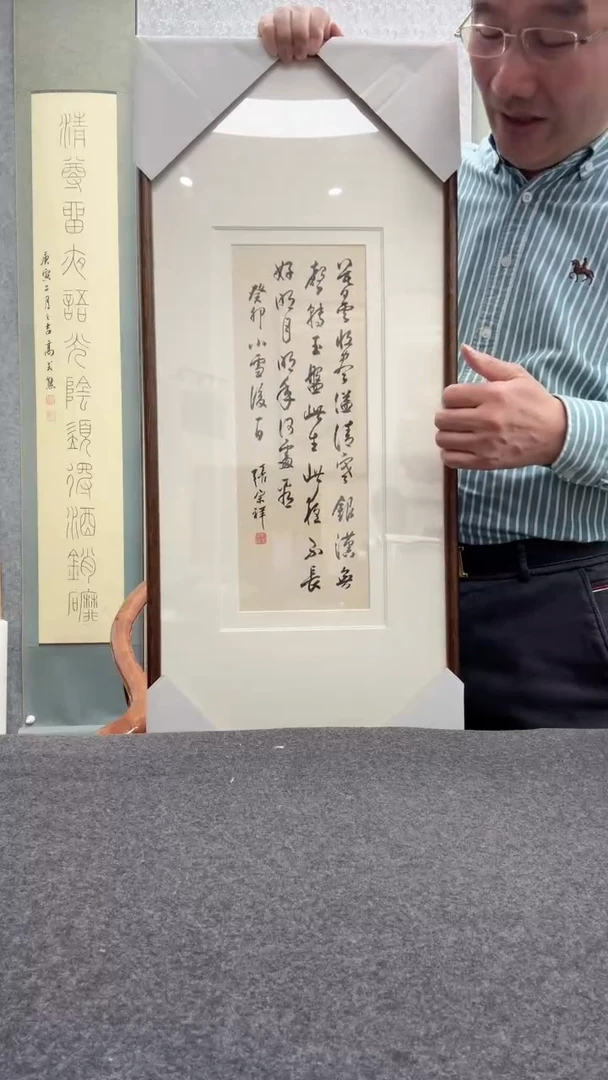 暮雲收盡溢清寒銀漢無
聲轉玉盤此生此夜不長
好明月明年何處看
癸卯小雪後一日 張宗祥
清尊留夜語光陰須得酒銷磨
庚寅二月之吉高式熊